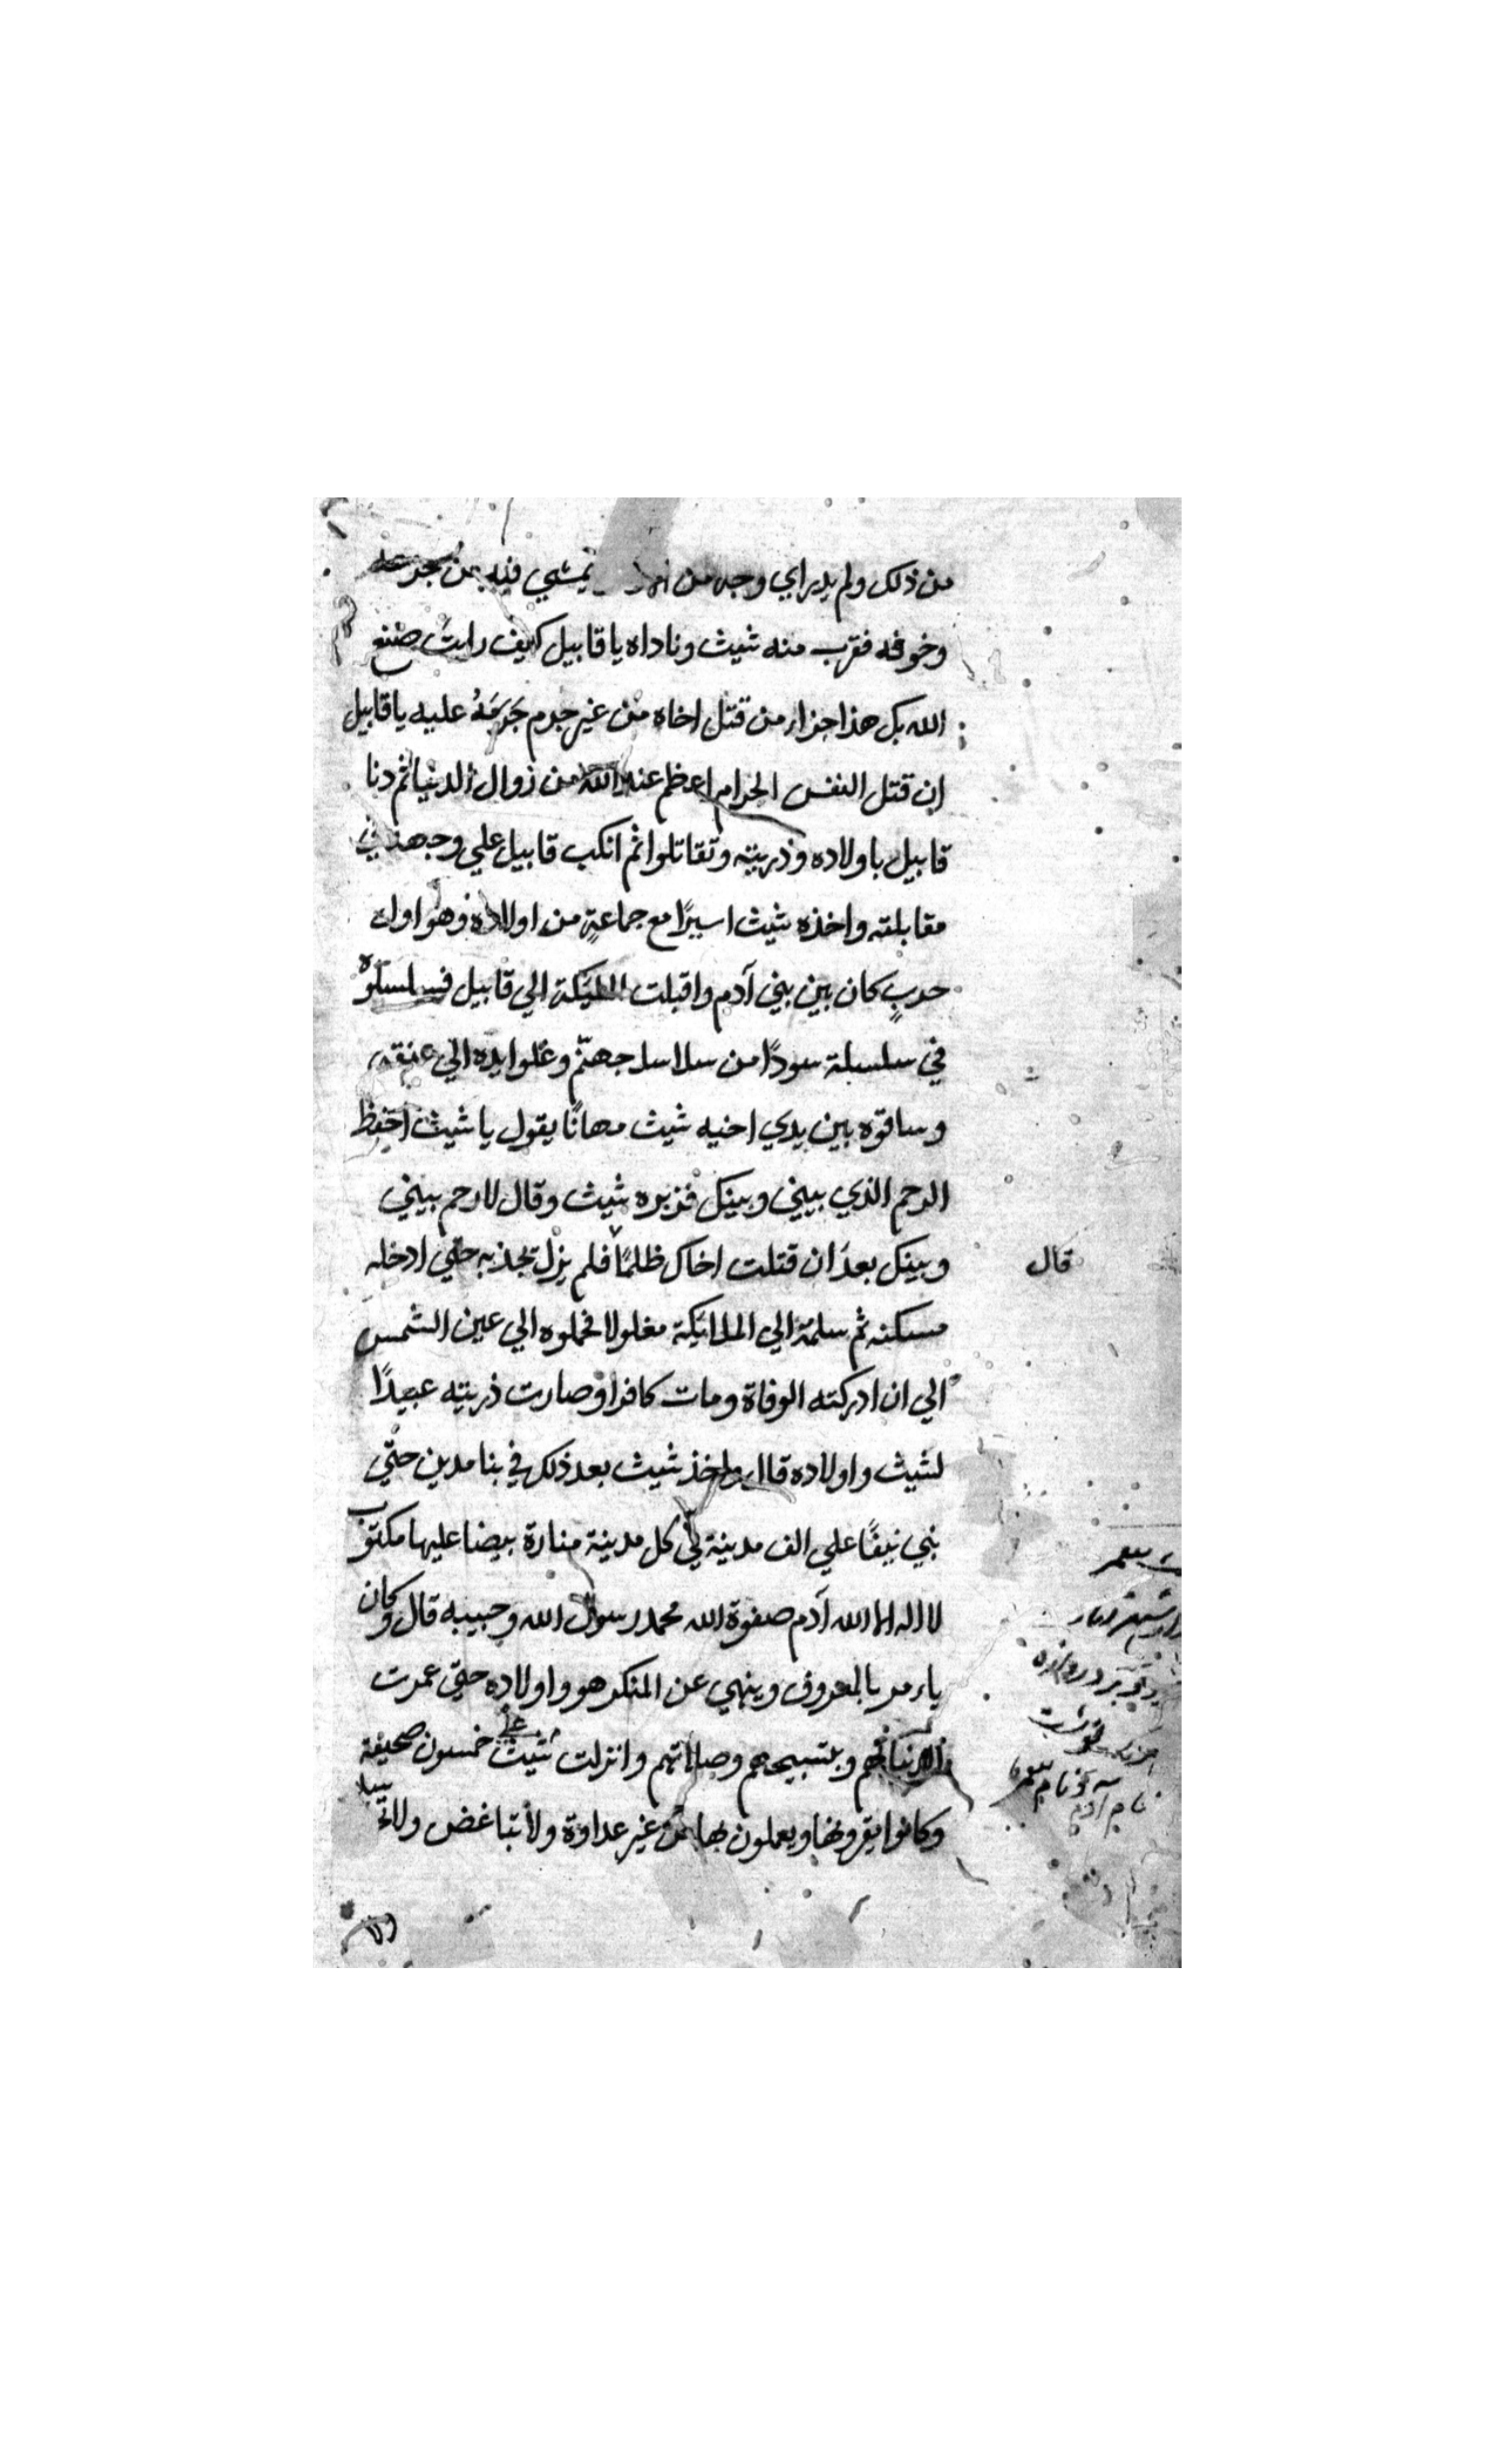 من ذلك ولم يدر اي وجه من يمشي فيه من
وخوفه فقرب منه شيث وناداه يا قابيل كيف رايت صنع
الله بك هذا جزاء من قتل اخاه من غير جرم جَرَمَهُ عليه يا قابيل
ان قتل النفس الحرام اعظم عند الله من زوال الدنيا ثم دنا
قابيل باولاده وذريته وتقاتلوا ثم انكب قابيل علي وجهه في
مقابلته واخذه شيث اسيرًا مع جماعةٍ من اولاده وهو اول
حربٍ كان بين بني آدم واقبلت الملئكة الي قابيل فسلسلوه
في سلسلة سودًا من سلاسل جهنّم وغلوا يده الي عنقه
وساقوه بين يدي اخيه شيث مهانًا يقول يا شيث احفظ
الرحم الذي بيني وبينك فزبره شيث وقال لا رحم بيني
وبينك بعد ان قتلت اخاك ظلمًا فلم يزل يجذبه حتي ادخله
قال
مسكنه ثم سلمه الي الملائكة مغلولا فحملوه الي عين الشمس
الي ان ادركته الوفاة ومات كافرا وصارت ذريته عبيدًا
لشيث واولاده قال واخذ شيث بعد ذلك في بنا مدين حتّي
بني نيفًا علي الف مدينة في كل مدينة منارة بيضا عليها مكتوب
لا اله الا الله آدم صفوة الله محمد رسول الله وحبيبه قال وكان
ياءمر بالمعروف وينهي عن المنكر هو واولاده حتي عمرت
وبتسبيحهم وصلاتهم وانزلت علي شيث خمسون صحيفة
وكانوا يقرونها ويعملون بها من غير عداوة ولا تباغض ولا